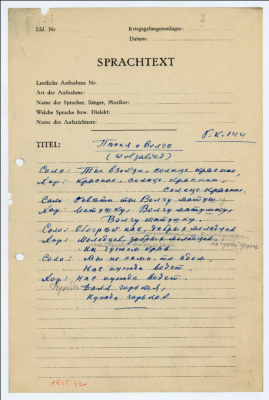 Lfd. Nr.
Kriegsgefangenenlager:
Datum:
SPRACHTEXT
Lautliche Aufnahme Nr.
Art der Aufnahme:
Name der Sprecher, Sänger, Musiker:
Welche Sprache bzw. Dialekt:
Name des Aufzeichners:
TITEL: Песня о Волге
Соло: Ты взойди, солнце красное,
Хор: Красное, солнце красное,
Солнце красное.
Соло: ты Волгу матуш
Хор: Матушку, Волгу матушку,
Волгу матушку.
Соло: Обогрей нас, добрых молодцев
Хор: Молодцев, добрых молодцев,
На чужой
Соло: Мы не сами-то идем,
Нас нужда ведет.
Хор: Нас нужда ведет.
Нужда горькая,
Нужда горькая.